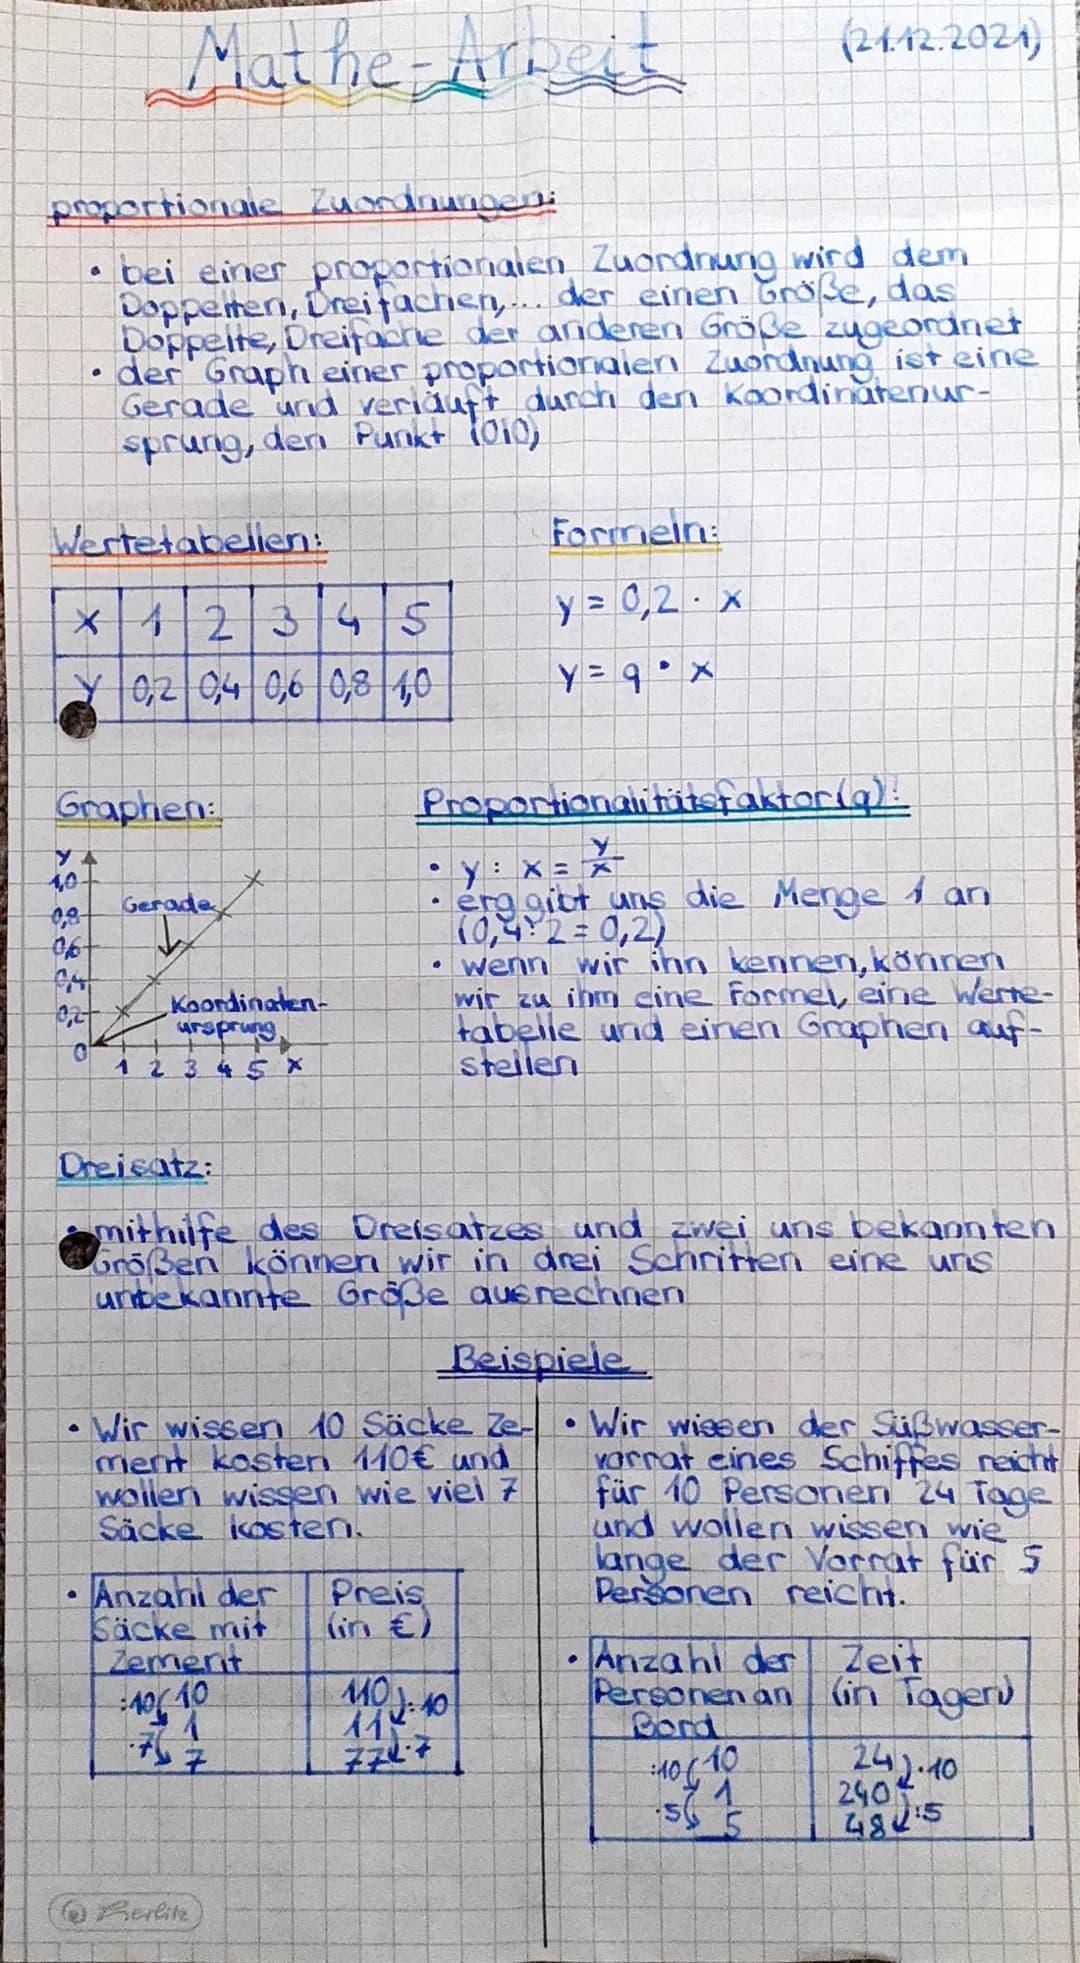 Mathe-Arbeit (21.12.2021)
proportionale Zuordnungen:
• bei einer proportionalen Zuordnung wird dem
Doppelten, Dreifachen,... der einen Größe, das
Doppelte, Dreifache der anderen Größe zugeordnet
• der Graph einer proportionalen Zuordnung ist eine
Gerade und verläuft durch den Koordinatenur-
sprung, den Punkt (0|0)
Wertetabellen:
x 1 2 3 4 5
y 0,2 0,4 0,6 0,8 1,0
Formeln:
y = 0,2 · x
y = q · x
Graphen:
y
1,0
0,8
0,6
0,4
0,2
0
1 2 3 4 5 x
Gerade
Koordinaten-
ursprung
Proportionalitätsfaktor (q):
• y : x = y/x
• er gibt uns die Menge 1 an
(0,4:2=0,2)
• wenn wir ihn kennen, können
wir zu ihm eine Formel, eine Werte-
tabelle und einen Graphen auf-
stellen
Dreisatz:
• mithilfe des Dreisatzes und zwei uns bekannten
Größen können wir in drei Schritten eine uns
unbekannte Größe ausrechnen
Beispiele
• Wir wissen 10 Säcke Ze-
ment kosten 110€ und
wollen wissen wie viel 7
Säcke kosten.
• Anzahl der
Säcke mit
Zement
Preis
(in €)
:10 10 110 :10
1 11
·7 7 77 ·7
• Wir wissen der Süßwasser-
vorrat eines Schiffes reicht
für 10 Personen 24 Tage
und wollen wissen wie
lange der Vorrat für 5
Personen reicht.
• Anzahl der
Personen an
Bord
Zeit
(in Tagen)
:10 10 24 ·10
1 240
·5 5 48 :5
Herlitz